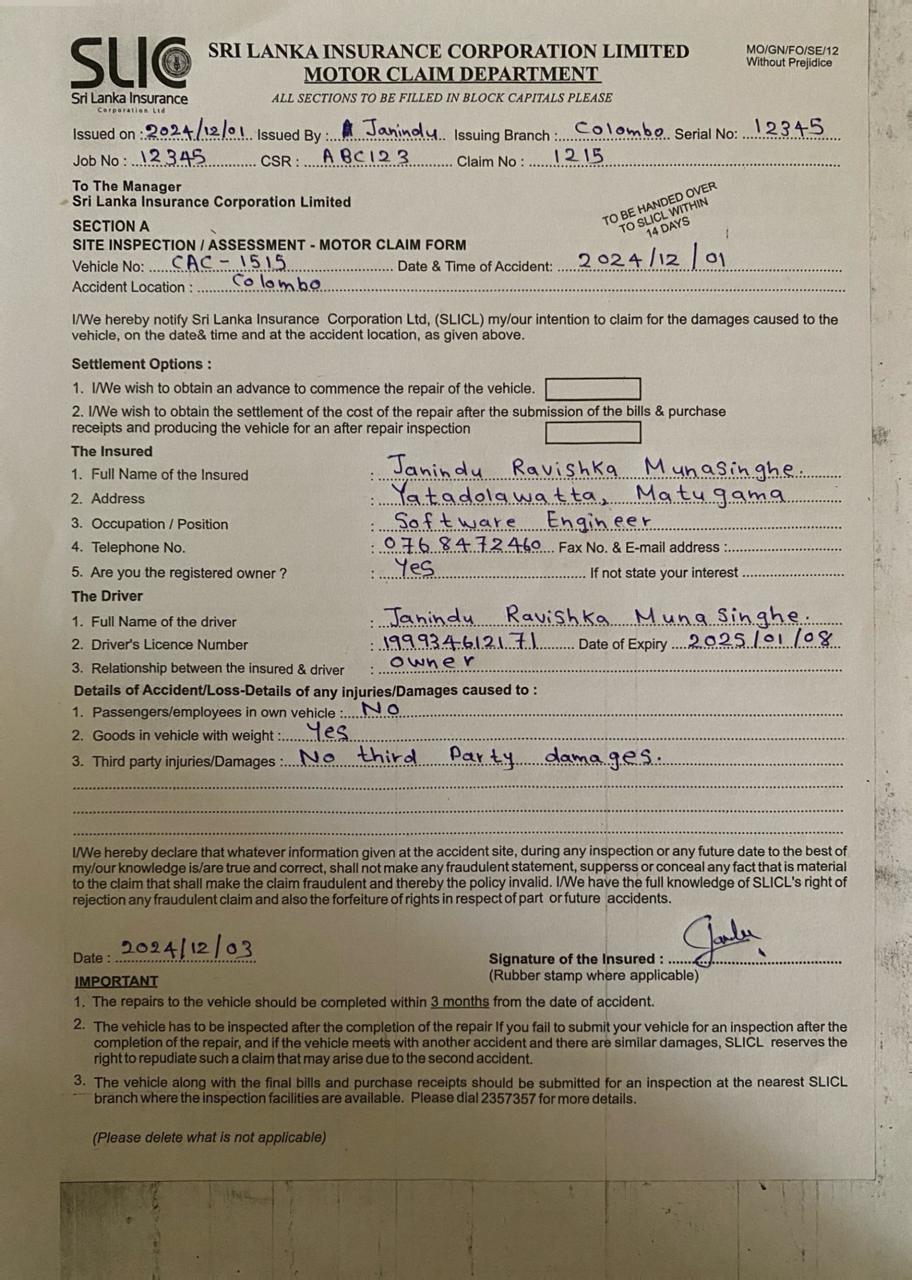 SLIC
Sri Lanka Insurance
Corporation Ltd
SRI LANKA INSURANCE CORPORATION LIMITED
MOTOR CLAIM DEPARTMENT
ALL SECTIONS TO BE FILLED IN BLOCK CAPITALS PLEASE
MO/GN/FO/SE/12
Without Prejidice
Issued on : 2024/12/01 Issued By : Janindu Issuing Branch : Colombo Serial No: 12345
Job No : 12345 CSR : ABC123 Claim No : 1215
To The Manager
Sri Lanka Insurance Corporation Limited
TO BE HANDED OVER
TO SLICL WITHIN
14 DAYS
SECTION A
SITE INSPECTION / ASSESSMENT - MOTOR CLAIM FORM
Vehicle No: CAC - 1515 Date & Time of Accident: 2024/12/01
Accident Location : Colombo
I/We hereby notify Sri Lanka Insurance Corporation Ltd, (SLICL) my/our intention to claim for the damages caused to the
vehicle, on the date& time and at the accident location, as given above.
Settlement Options :
1. I/We wish to obtain an advance to commence the repair of the vehicle.
2. I/We wish to obtain the settlement of the cost of the repair after the submission of the bills & purchase
receipts and producing the vehicle for an after repair inspection
The Insured
1. Full Name of the Insured : Janindu Ravishka Munasinghe.
2. Address : Yatadolawatta, Matugama
3. Occupation / Position : Software Engineer
4. Telephone No. : 0768472460 Fax No. & E-mail address :
5. Are you the registered owner ? : Yes If not state your interest
The Driver
1. Full Name of the driver : Janindu Ravishka Munasinghe.
2. Driver's Licence Number : 199934612171 Date of Expiry 2025/01/08
3. Relationship between the insured & driver : owner
Details of Accident/Loss-Details of any injuries/Damages caused to :
1. Passengers/employees in own vehicle : No
2. Goods in vehicle with weight : Yes
3. Third party injuries/Damages : No third Party damages.
I/We hereby declare that whatever information given at the accident site, during any inspection or any future date to the best of
my/our knowledge is/are true and correct, shall not make any fraudulent statement, supperss or conceal any fact that is material
to the claim that shall make the claim fraudulent and thereby the policy invalid. I/We have the full knowledge of SLICL's right of
rejection any fraudulent claim and also the forfeiture of rights in respect of part or future accidents.
Date : 2024/12/03
Signature of the Insured :
(Rubber stamp where applicable)
IMPORTANT
1. The repairs to the vehicle should be completed within 3 months from the date of accident.
2. The vehicle has to be inspected after the completion of the repair If you fail to submit your vehicle for an inspection after the
completion of the repair, and if the vehicle meets with another accident and there are similar damages, SLICL reserves the
right to repudiate such a claim that may arise due to the second accident.
3. The vehicle along with the final bills and purchase receipts should be submitted for an inspection at the nearest SLICL
branch where the inspection facilities are available. Please dial 2357357 for more details.
(Please delete what is not applicable)